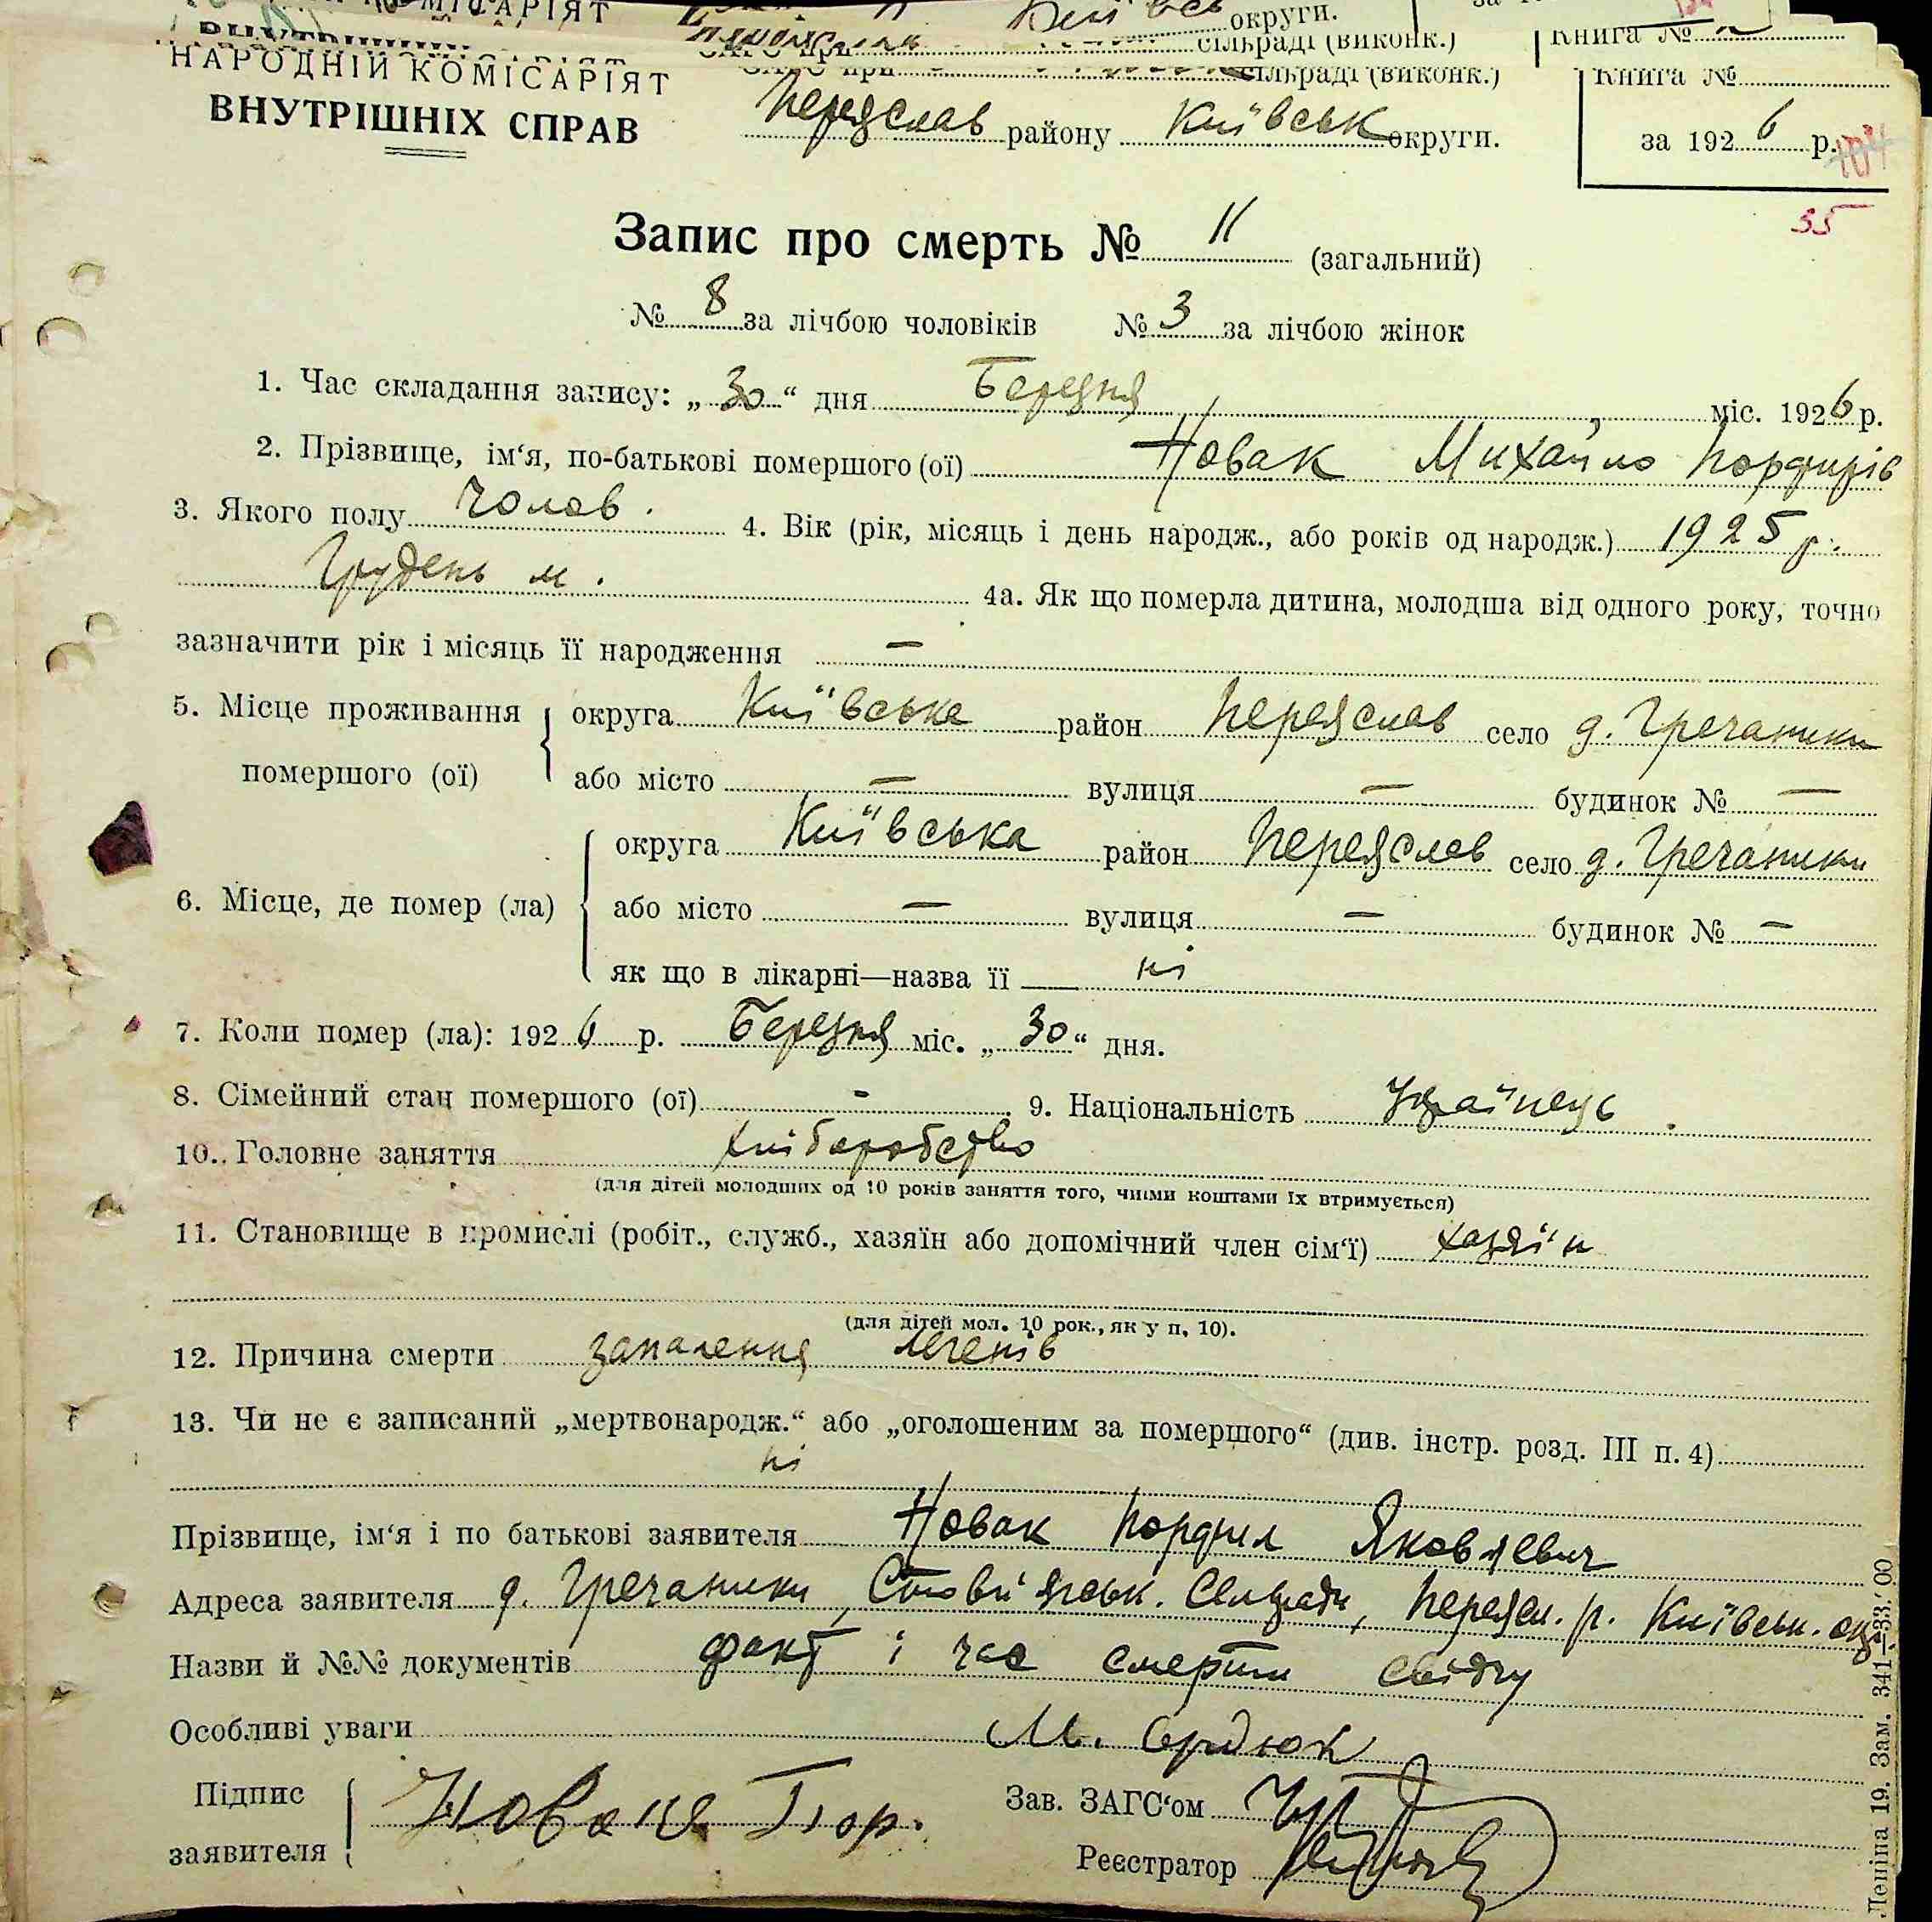 НАРОДНІЙ КОМІСАРІЯТ
ВНУТРІШНІХ СПРАВ
округи.
сільраді (виконк.)
Книга №
сільраді (виконк.)
Книга №
Переяслав району Київськ округи.
за 192 6 р.
35
Запис про смерть № 11 (загальний)
№ 8 за лічбою чоловіків № 3 за лічбою жінок
1. Час складання запису: „ 30 “ дня Березня міс. 1926 р.
2. Прізвище, ім‘я, по-батькові помершого (ої) Новак Михайло Порфирів
3. Якого полу Чолов. 4. Вік (рік, місяць і день народж., або років од народж.) 1925 р.
Грудень м. 4а. Як що померла дитина, молодша від одного року, точно
зазначити рік і місяць її народження —
5. Місце проживання помершого (ої) округа Київська район Переяслав село д. Гречаники
або місто — вулиця — будинок № —
6. Місце, де помер (ла) округа Київська район Переяслав село д. Гречаники
або місто — вулиця — будинок № —
як що в лікарні—назва її ні
7. Коли помер (ла): 192 6 р. Березня міс. „ 30 “ дня.
8. Сімейний стан помершого (ої) - 9. Національність Українець.
10. Головне заняття хліборобство
(для дітей молодших од 10 років заняття того, чиїми коштами їх втримується)
11. Становище в промислі (робіт., служб., хазяїн або допомічний член сім‘ї) хазяїн
(для дітей мол. 10 рок., як у п. 10).
12. Причина смерти запалення легенів
13. Чи не є записаний „мертвонародж.“ або „оголошеним за помершого“ (див. інстр. розд. III п. 4)
ні
Прізвище, ім‘я і по батькові заявителя Новак Порфил Яковлевич
Адреса заявителя д. Гречаники, Стовп'язськ. Сельради, Переясл. р. Київськ. окр.
Назви й №№ документів факт і час смерти свідчу
Особливі уваги М. Сердюк
Підпис заявителя Новак Пор.
Зав. ЗАГС‘ом
Реєстратор
Леніна 19. Зам. 341—33.